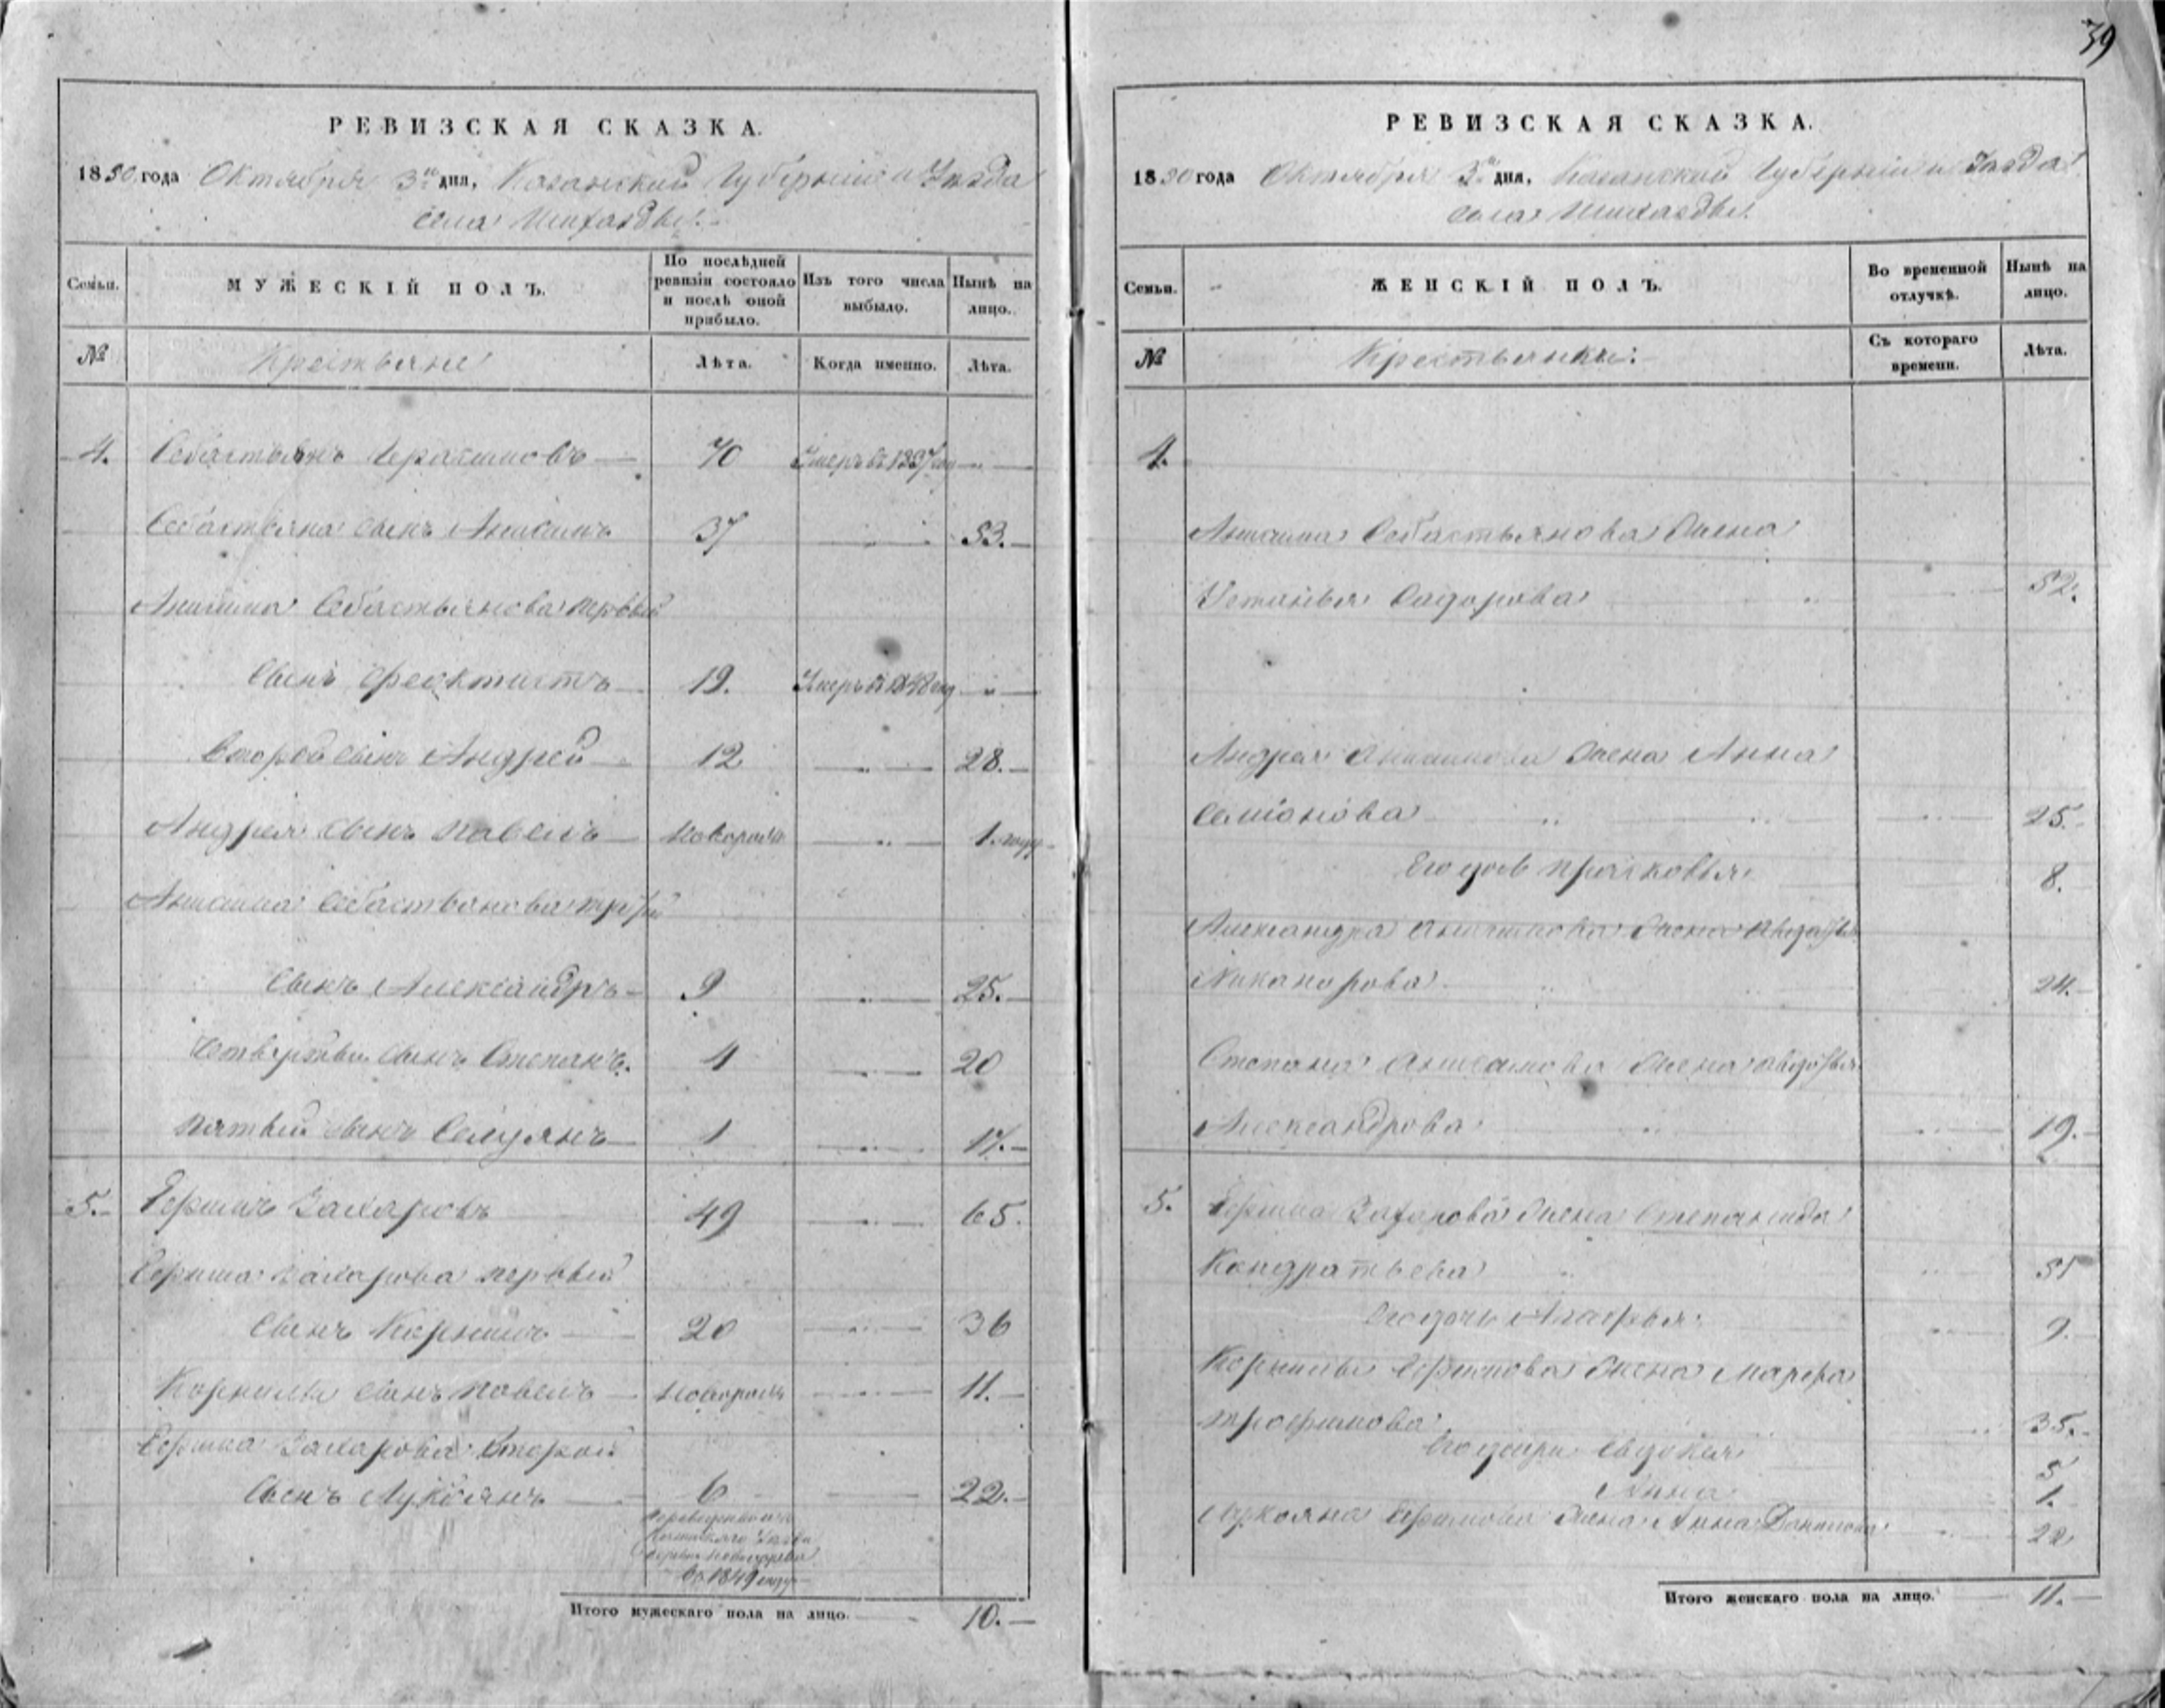 39
РЕВИЗСКАЯ СКАЗКА.
1850 года Октября 3го дня, Казанской Губерніи и Уезда
села Шигазды.
Семьи.
МУЖЕСКІЙ ПОЛЪ.
По послѣдней ревизіи состояло и послѣ оной прибыло.
Изъ того числа выбыло.
Нынѣ на лицо.
№ Крестьяне Лѣта. Когда именно. Лѣта.
4. Себастьянъ Герасимовъ 70 Умеръ въ 1837 „
Себастьяна сынъ Анисимъ 37 „ 53.
Анисима Себастьянова первый
сынъ Феоктистъ 19. Умеръ въ 1848 году „
Второй сынъ Андрей 12 „ 28.
Андрея сынъ Павелъ новорожд „ 1. году
Анисима Себастьянова третій
сынъ Александръ 9 „ 25.
Четвертый сынъ Степанъ. 4 „ 20
Пятый сынъ Селуянъ 1 „ 17.
5. Ефимъ Захаровъ 49 „ 65.
Ефима Захарова первый
сынъ Корнилъ 20 „ 36
Корнилы сынъ Павелъ новорожд 11.
Ефима Захарова второй
сынъ Лукоянъ 6 22.
въ 1849 году
Итого мужескаго пола на лицо. 10.
РЕВИЗСКАЯ СКАЗКА.
1850 года Октября 3го дня, Казанской Губерніи и Уезда
села Шигазды.
Семьи.
ЖЕНСКІЙ ПОЛЪ.
Во временной отлучкѣ.
Нынѣ на лицо.
№ Крестьянки. Съ котораго времени. Лѣта.
4.
Анисима Себастьянова жена
Устинья Сидорова „ 52.
Андрея Анисимова жена Анна
Семіонова „ „ „ 25.
Его дочь Прасковья 8.
Александра Анисимова жена Авдотья
Никанорова „ 24.
Степана Анисимова жена Авдотья
Александрова „ „ 19.
5. Ефима Захарова жена Степанида
Кондратьева „ „ 51
Его дочь Агафья 9.
Корнилы Ефимова жена Марфа
Трофимова „ 35.
Его дочери Евдокия 5
Анна 1.
Лукояна Ефимова жена Анна Данилова „ 22
Итого женскаго пола на лицо. 11.